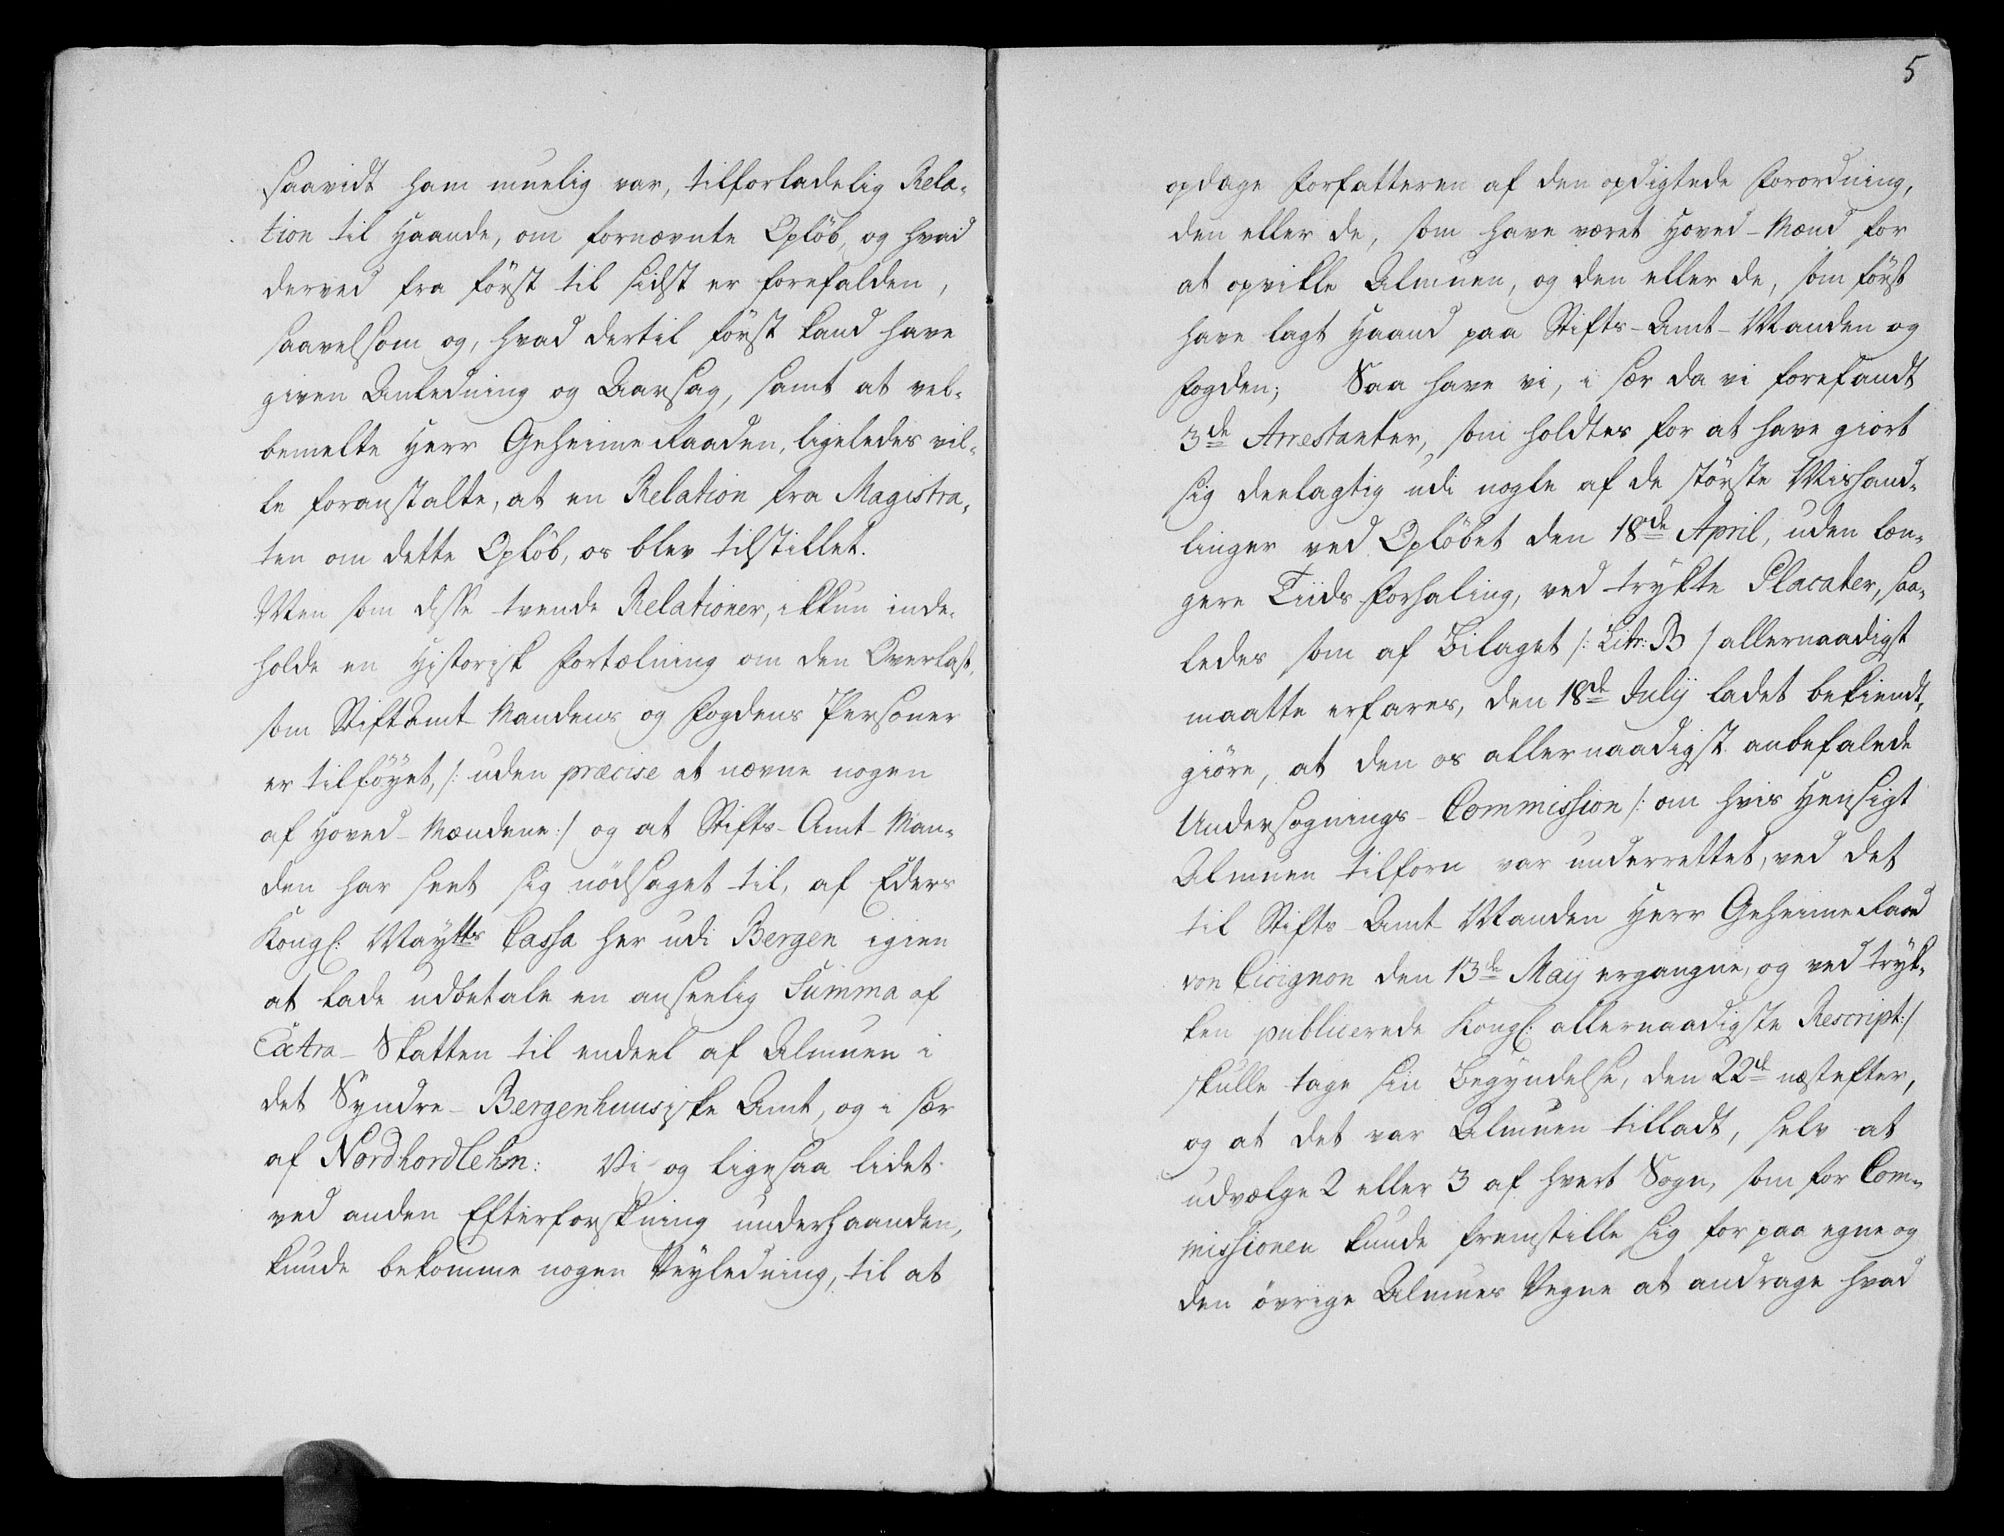 saavidt ham muelig var, tilforladelig Rela-
tion til Haande, om fornævnte Opløb, og hvad
derved fra først til sidst er forefalden,
saavelsom og, hvad dertil først kand have
given Anledning og Aarsag, samt at vel-
bemelte Herr GeheimeRaaden, ligeledes vil-
le foranstalte, at en Relation fra Magistra-
ten om dette Opløb, os blev tilstillet.
Men som disse tvende Relationer, ikkun inde-
holde en Historisk Fortælning om den Overlast,
som StiftAmt Mandens og Fogdens Personer
er tilføyet, /: uden præcise at nævne nogen
af Hoved-Mændene :/ og at Stifts-Amt-Man-
den har seet sig nødsaget til, af Eders
Kongl: Maytts Cassa her udi Bergen igien
at lade udbetale en anseelig Summa af
Extra-Skatten til endeel af Almuen i
det Syndre-Bergenhuusiske Amt, og i sær
af Nordhordlehn: Vi og ligesaa lidet
ved anden Efterforskning underhaanden,
kunde bekomme nogen Veyledning, til at
5
opdage Forfatteren af den opdigtede Forordning,
den eller de, som have været Hoved-Mænd for
at opvikle Almuen, og den eller de, som først
have lagt Haand paa Stifts-Amt-Manden og
Fogden; Saa have vi, i sær da vi forefandt
3de Arrestanter, som holdtes for at have giort
sig deelagtig udi nogle af de største Mishand-
linger ved Opløbet den 18de April, uden læn-
gere Tiids Forhaling, ved trykte Placater, saa-
ledes som af Bilaget /: Litr: B / allernaadigst
maatte erfares, den 18de Julij ladet bekiendt-
giøre, at den os allernaadigst anbefalede
Undersøgnings-Commission /: om hvis Hensigt
Almuen tilforn var underrettet, ved det
til Stifts-Amt Manden Herr GeheimeRaad
von Cicignon den 13de Maij ergangne, og ved tryk-
ken publicerede Kongl: allernaadigste Rescript :/
skulle tage sin Begyndelse, den 22de næstefter,
og at det var Almuen tilladt, selv at
udvælge 2 eller 3 af hvert Sogn, som for Com-
missionen kunde fremstille sig for paa egne og
den øvrige Almues Vegne at andrage hvad